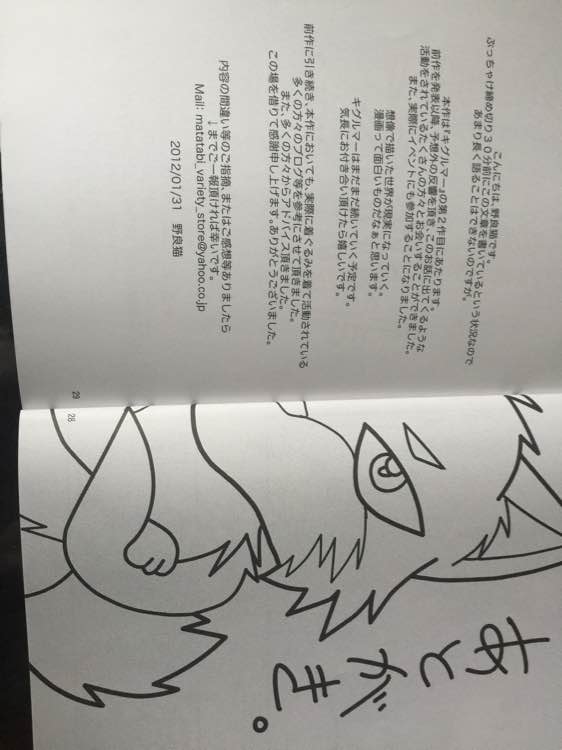 あとがき。
こんにちは、野良猫です。
ぶっちゃけ締め切り30分前にこの文章を書いているという状況なので
あまり長く語ることはできないのですが。
本作は『キグルマー』の第2作目にあたります。
前作を発表以降、予想外の反響を頂き、このお話に出てくるような
活動をされているたくさんの方々とお会いすることができました。
また、実際にイベントにも参加することになりました。
想像で描いた世界が現実になっていく。
漫画って面白いものだなぁと思います。
キグルマーはまだまだ続いていく予定です。
気長にお付き合い頂けたら嬉しいです。
前作に引き続き、本作においても、実際に着ぐるみを着て活動されている
多くの方々のブログ等を参考にさせて頂きました。
また、多くの方々からアドバイス頂きました。
この場を借りて感謝申し上げます。ありがとうございました。
内容の間違い等のご指摘、またはご感想等ありましたら
↓までご一報頂ければ幸いです。
Mail: matatabi_variety_store@yahoo.co.jp
2012/01/31 野良猫
29
28